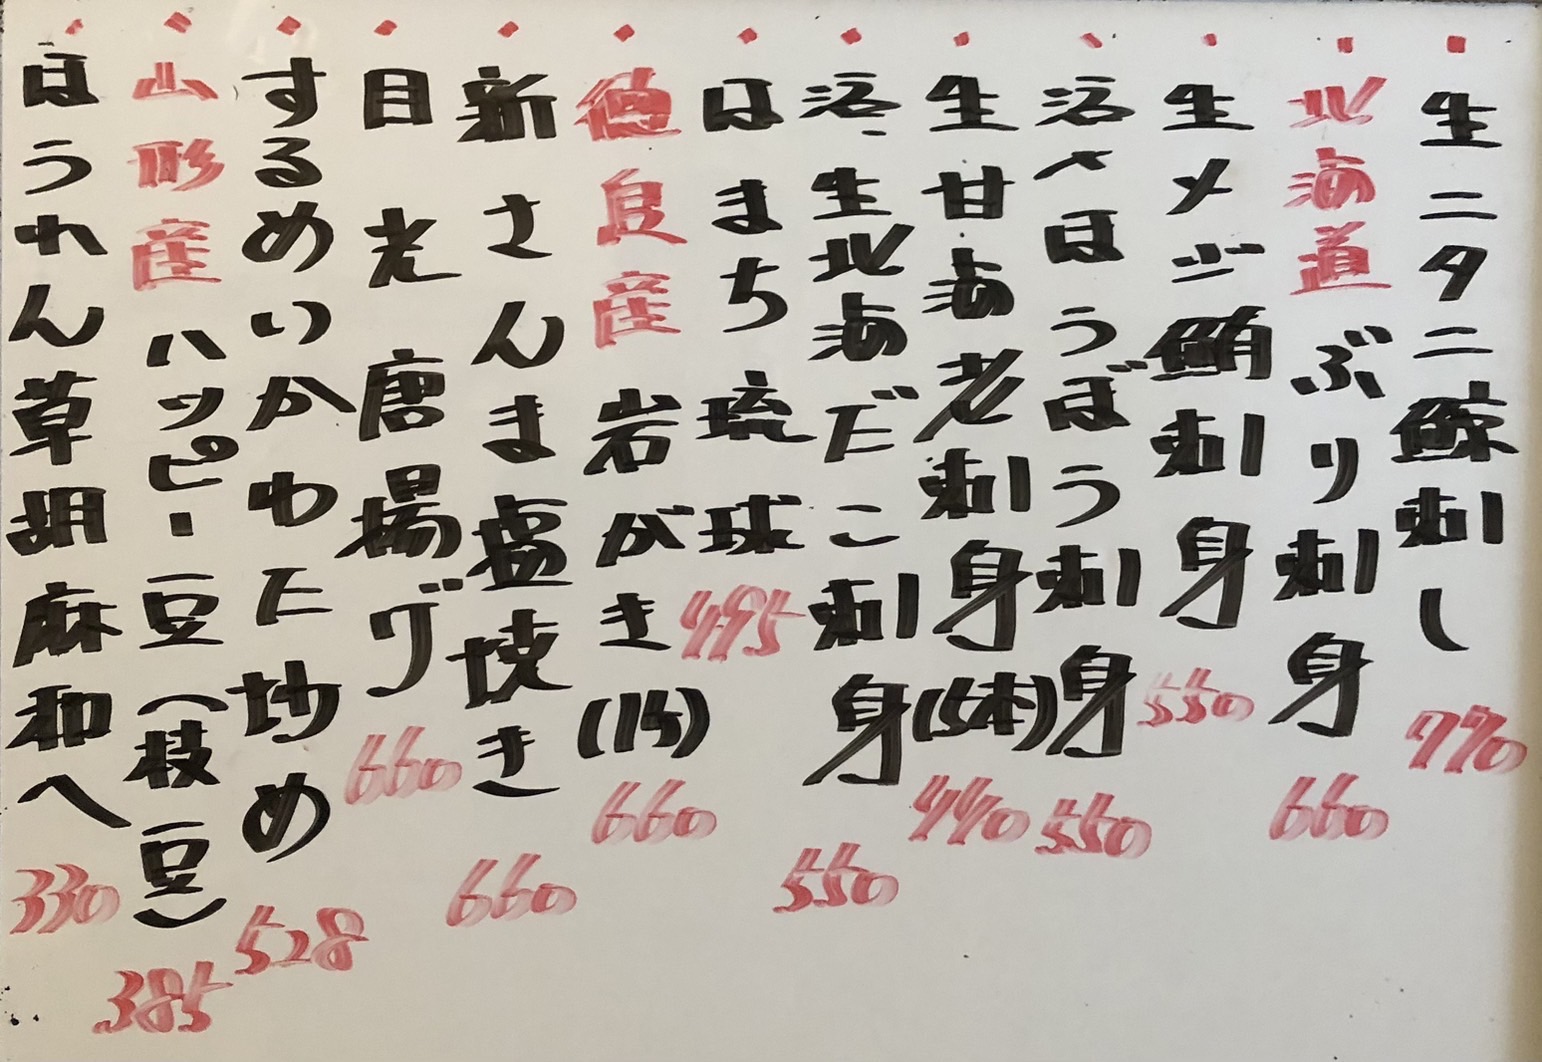 生ニタニ鯨刺し 770
北海道 ぶり刺身 660
生メジ鮪刺身 550
活〆ほうぼう刺身 550
生甘海老刺身(5本) 440
活、生北海だこ刺身 550
はまち琉球 495
徳良産 岩がき(1ケ) 660
新さんま塩焼き 660
目光唐揚げ 660
するめいかわた炒め 528
山形産 ハッピー豆(枝豆) 385
ほうれん草胡麻和へ 330